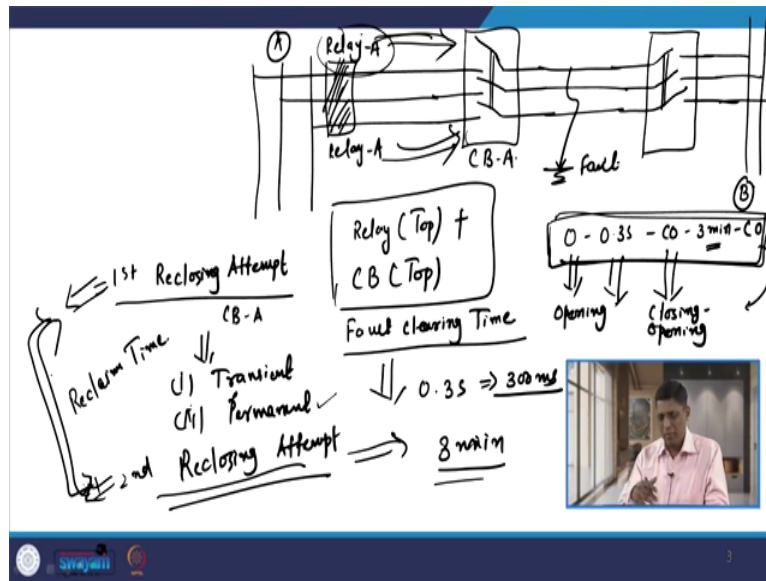 A
Relay-A
Relay-A
CB-A.
Fault.
B
Relay (Top) +
CB (Top)
Fault clearing Time
0.3s ⇒ 300 ms
0 - 0.3s - CO - 3 min - CO
Opening
Closing-
Opening
1st Reclosing Attempt
CB-A
Reclaim Time
(i) Transient
(ii) Permanent ✓
2nd Reclosing Attempt
3 min
swayam
3